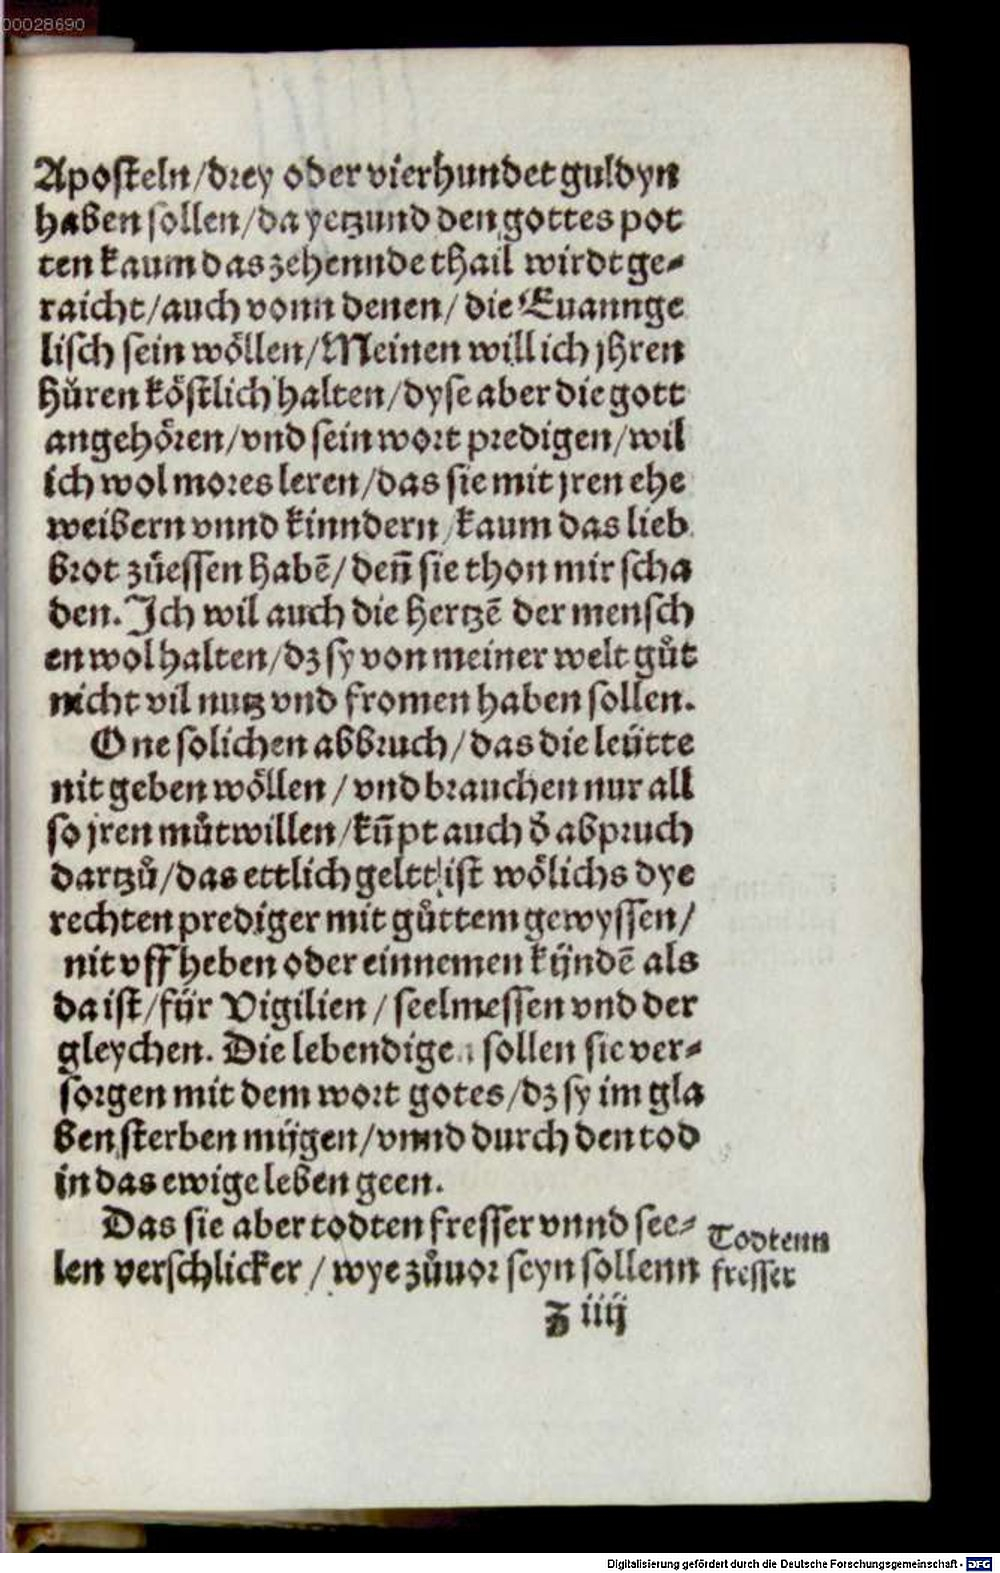 00028690
Aposteln/drey oder vierhundet guldyn
haben sollen/da yetzund den gottes pot
ten kaum das zehennde thail wirdt ge⸗
raicht/auch vonn denen/ die Euannge
lisch sein wöllen/Meinen will ich jhren
Hůren köstlich halten/dyse aber die gott
angehören/vnd sein wort predigen/wil
ich wol mores leren/das sie mit jren ehe
weibern vnnd kinndern/kaum das lieb
brot zůessen habē/ deñ sie thon mir scha
den. Ich wil auch die hertzē der mensch
en wol halten/dz sy von meiner welt gůt
nicht vil nutz vnd fromen haben sollen.
One solichen abbruch/das die leütte
nit geben wöllen/ vnd brauchen nur all
so jren můtwillen/kũpt auch d̓ abpruch
dartzů/das ettlich geltt ist wölichs dye
rechten prediger mit gůttem gewyssen/
nit vff heben oder einnemen kündē als
da ist/für Vigilien/ seelmessen vnd der
gleychen. Die lebendigen sollen sie ver⸗
sorgen mit dem wort gotes/dz sy im gla
ben sterben mügen/vnnd durch den tod
in das ewige leben geen.
Das sie aber todten fresser vnnd see⸗
len verschlicker/ wye zůuor seyn sollenn
Todtenn
fresser
z iiij
Digitalisierung gefördert durch die Deutsche Forschungsgemeinschaft - DFG